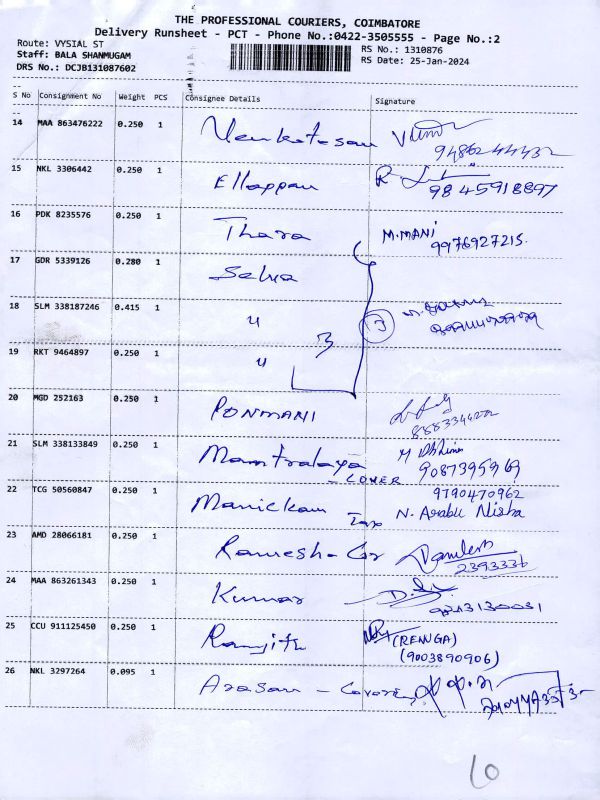 THE PROFESSIONAL COURIERS, COIMBATORE
Delivery Runsheet - PCT - Phone No.:0422-3505555 - Page No.:2
Route: VYSIAL ST
Staff: BALA SHANMUGAM
DRS No.: DCJB131087602
RS No.: 1310876
RS Date: 25-Jan-2024
S No Consignment No Weight PCS Consignee Details Signature
14 MAA 863476222 0.250 1 Venkatesan
15 NKL 3306442 0.250 1 Ellappan
9845918897
16 PDK 8235576 0.250 1 Thara M.MANI
9976927215.
17 GDR 5339126 0.280 1 Selva
18 SLM 338187246 0.415 1 〃 3 3
19 RKT 9464897 0.250 1 〃
20 MGD 252163 0.250 1 PONMANI
21 SLM 338133849 0.250 1 Mamtralaya
- COVER 9087395969
22 TCG 50560847 0.250 1 Manickam 9790470962
Tax N. Arabu Nisha
23 AMD 28066181 0.250 1 Ramesh - Cr
2393336
24 MAA 863261343 0.250 1 Kumar
25 CCU 911125450 0.250 1 Ranjith (RENUGA)
(9003890906)
26 NKL 3297264 0.095 1 Arasan -
10